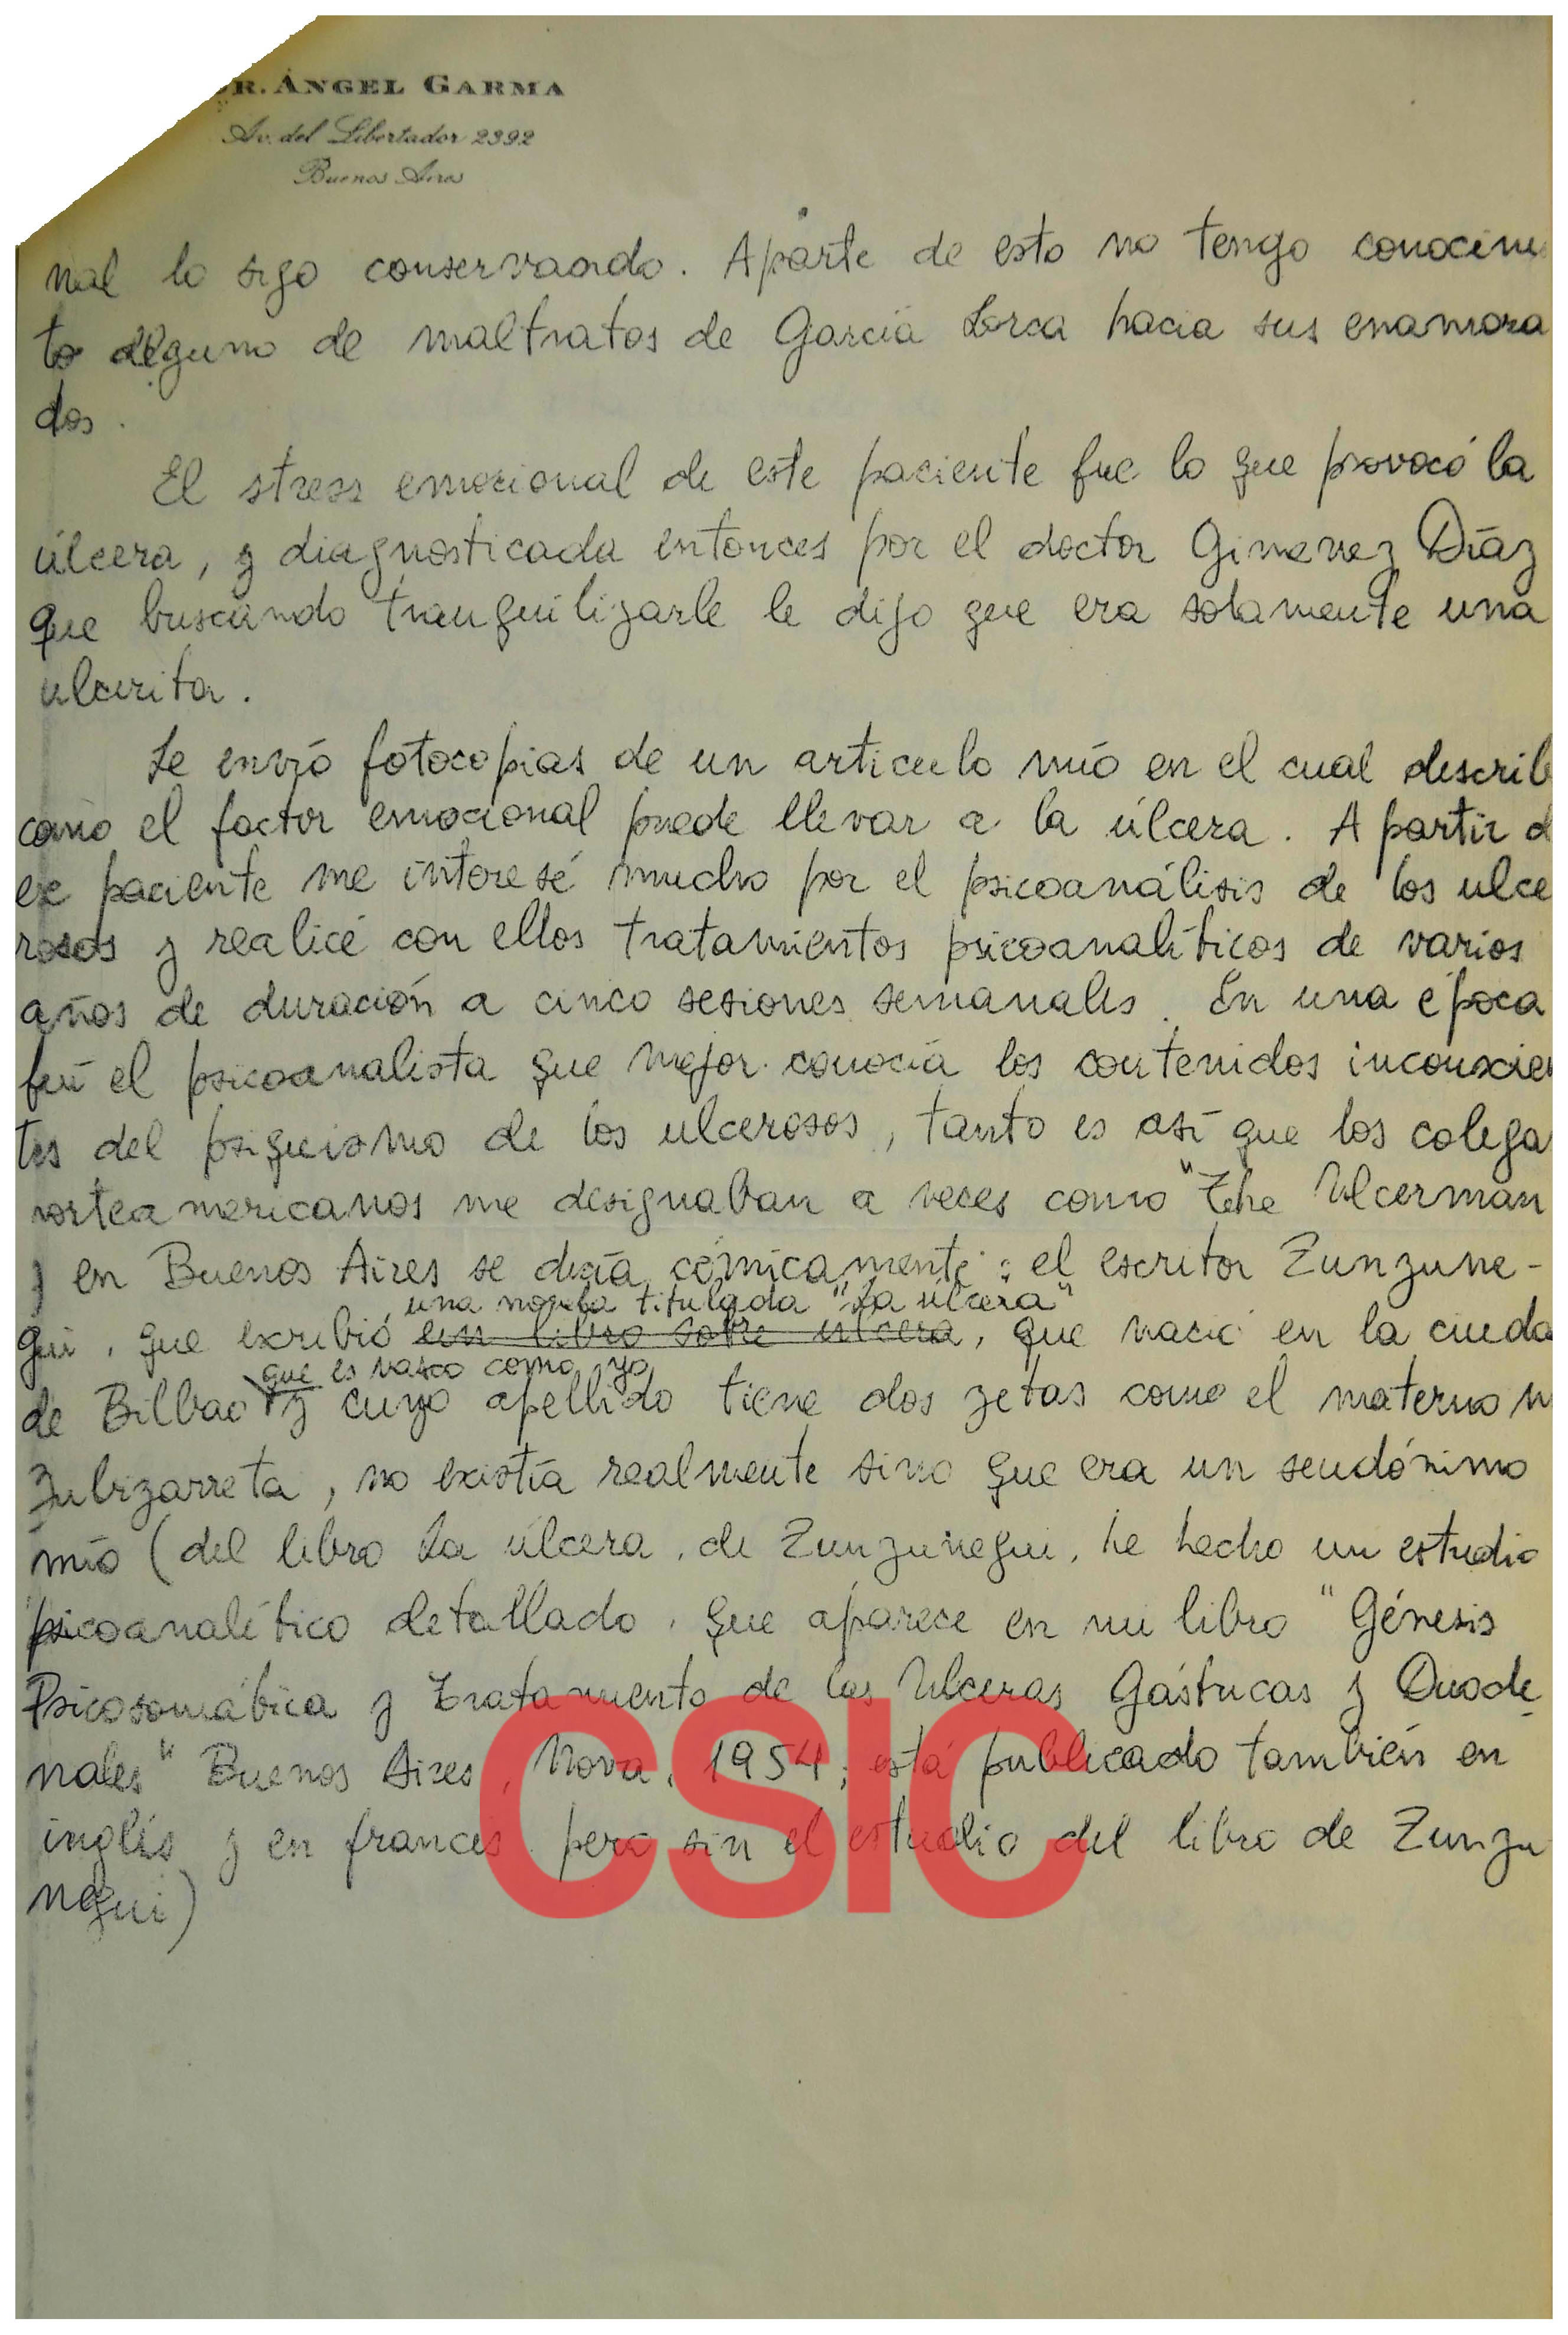 R. ÁNGEL GARMA
Av. del Libertador 2392
Buenos Aires
nal lo sigo conservando. Aparte de esto no tengo conocim
to alguno de maltratos de García Lorca hacia sus enamora
dos.
El stress emocional de este paciente fue lo que provocó la
úlcera, y diagnosticada entonces por el doctor Gimenez Díaz
que buscando tranquilizarle le dijo que era solamente una
ulcerita.
Le envío fotocopias de un articulo mío en el cual describ
como el factor emocional puede llevar a la úlcera. A partir d
ese paciente me interesé mucho por el psicoanálisis de los ulce
rosos y realicé con ellos tratamientos psicoanalíticos de varios
años de duración a cinco sesiones semanales. En una época
fuí el psicoanalista que mejor conocía los contenidos inconscien
tes del psiquismo de los ulcerosos, tanto es así que los colega
norteamericanos me designaban a veces como "The Ulcerman
y en Buenos Aires se decía cómicamente: el escritor Zunzune-
una novela titulada "La úlcera"
gui, que escribió un libro sobre ulcera, que nació en la ciuda
que es vasco como yo
de Bilbao y cuyo apellido tiene dos zetas como el materno m
Zubizarreta, no existía realmente sino que era un seudónimo
mío (del libro La úlcera, de Zunzunegui, he hecho un estudio
psicoanalítico detallado, que aparece en mi libro "Génesis
Psicosomática y Tratamiento de las Ulceras Gástricas y Duode
nales" Buenos Aires, Nova, 1954; está publicado también en
inglés y en francés pero sin el estudio del libro de Zunzu
negui)
CSIC